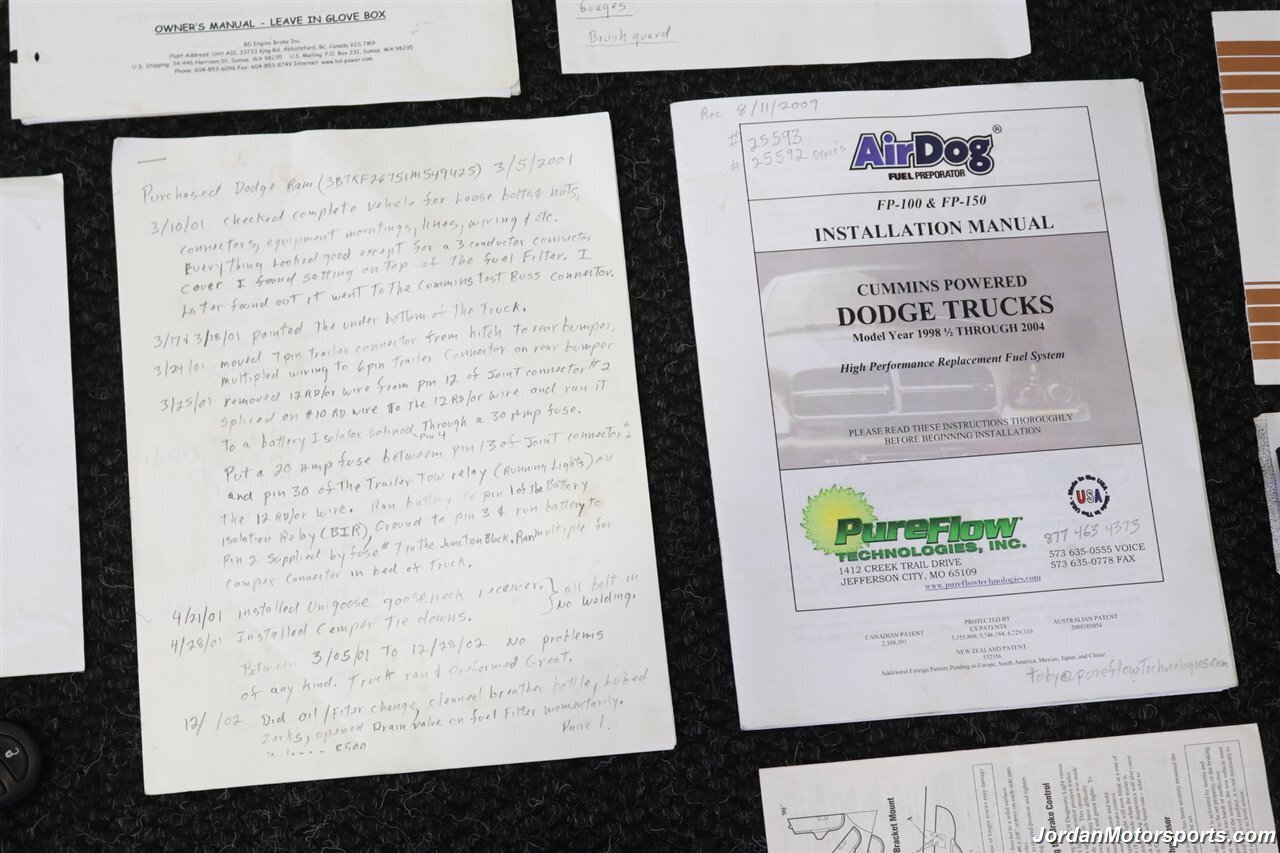 OWNER'S MANUAL - LEAVE IN GLOVE BOX
BD Engine Brake Inc.
Plant Address: Unit A10, 33733 King Rd, Abbotsford, BC, Canada V2S 7M9
U.S. Shipping: 34-446 Harrison St, Sumas, WA 98295 U.S. Mailing: P.O. Box 231, Sumas, WA 98295
Phone: 604-853-6096 Fax: 604-853-8749 Internet: www.bd-power.com
Brush guard
Purchased Dodge Ram (3B7KF26751M549425) 3/5/2001
3/10/01 checked complete vehicle for Loose bolts & nuts,
connectors, equipment mountings, lines, wiring & etc.
Everything Looked good except for a 3 conductor connector
cover I found sitting on Top of The fuel Filter. I
Later found out it went To The Cummins Test Buss connector.
3/17 & 3/18/01 painted The under bottom of The Truck.
3/24/01 moved 7 pin Trailer connector from hitch to rear bumper,
multipled wiring to 6 pin Trailer Connector on rear bumper
3/25/01 removed 12 RD/or wire from pin 12 of Joint connector #2
spliced on #10 RD wire To The 12 RD/or wire and ran it
to a battery Isolator through a 30 Amp fuse.
Pin 4
Put a 20 Amp fuse between pin 13 of Joint connector
and pin 30 of The Trailer Tow relay (Running Lights) on
The 12 RD/or wire. Ran battery to pin 1 of The Battery
Isolation Relay (BIR), Ground to pin 3 & run battery to
Pin 2 supplied by fuse #7 in The Junction Block. Ran multiple for
camper connector in bed of Truck.
4/21/01 installed Unigoose gooseneck receiver. } all bolt in
4/28/01 Installed Camper Tie downs. No welding.
Between 3/05/01 To 12/28/02 No problems
of any kind. Truck ran & preformed Great.
12/ /02 Did oil/Filter change, cleaned breather bottle, Lubed
Zerks, opened Drain valve on fuel Filter momentarity.
Page 1
Rec 8/11/2009
# 25593
# 25592
AirDog®
FUEL PREPORATOR
FP-100 & FP-150
INSTALLATION MANUAL
CUMMINS POWERED
DODGE TRUCKS
Model Year 1998 ½ THROUGH 2004
High Performance Replacement Fuel System
PLEASE READ THESE INSTRUCTIONS THOROUGHLY
BEFORE BEGINNING INSTALLATION
Made in the USA
USA
PureFlow
TECHNOLOGIES, INC.
877 463 4373
1412 CREEK TRAIL DRIVE
JEFFERSON CITY, MO 65109
www.pureflowtechnologies.com
573 635-0555 VOICE
573 635-0778 FAX
CANADIAN PATENT
2,108,391
PROTECTED BY
US PATENTS
5,355,860; 5,746,184; 6,729,310
AUSTRALIAN PATENT
2005101054
NEW ZEALAND PATENT
532356
Additional Foreign Patents Pending in Europe, South America, Mexico, Japan, and China!
toby@pureflowtechnologies.com
90°
Bracket Mount
Brake Control
JordanMotorsports.com